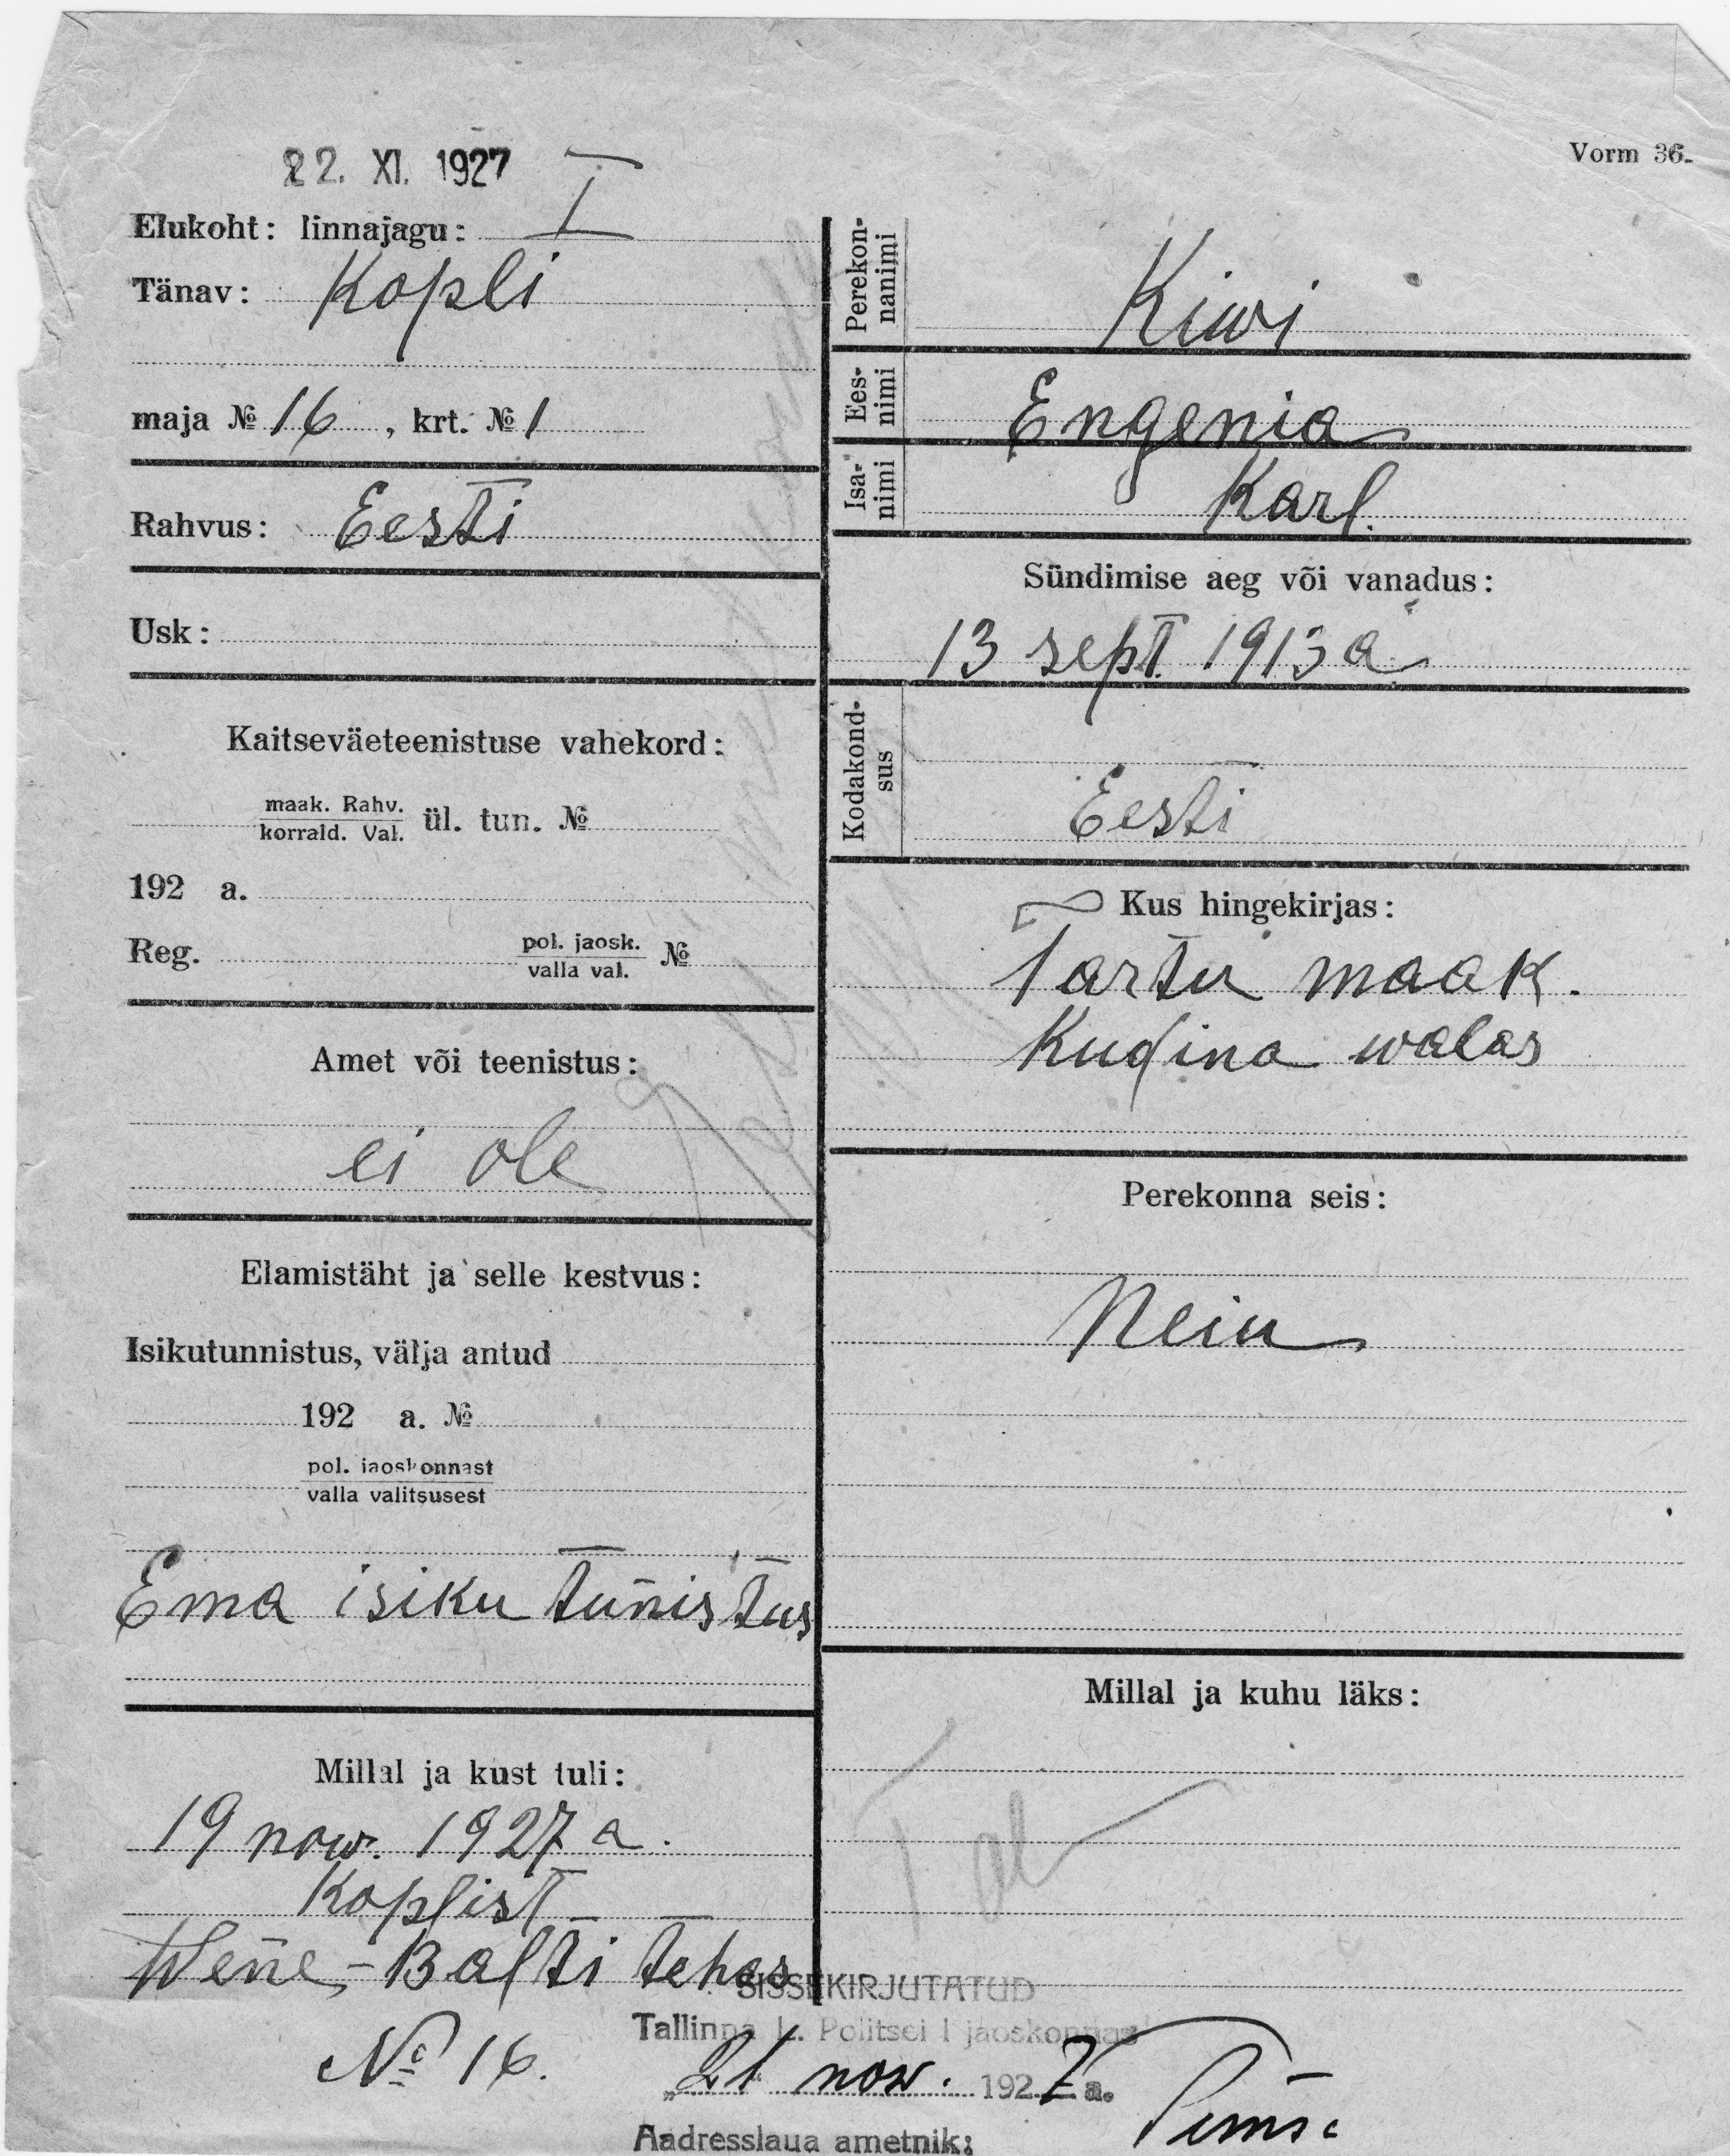 22. XI. 1927
Vorm 36.
Elukoht: linnajagu: I
Tänav: Kopli
maja № 16, krt. № 1
Rahvus: Eesti
Usk:
Kaitseväeteenistuse vahekord:
maak. Rahv.
korrald. Val. ül. tun. №
192 a.
Reg. pol. jaosk.
valla val. №
Amet või teenistus:
ei ole
Elamistäht ja selle kestvus:
Isikutunnistus, välja antud
192 a. №
pol. jaoskonnast
valla valitsusest
Ema isiku tun̄istus
Millal ja kust tuli:
19 now. 1927 a.
Koplist
Wen̄e-Balti tehas
№ 16.
Perekon-
nanimi
Kiwi
Ees-
nimi
Engenia
Isa-
nimi
Karl.
Sündimise aeg või vanadus:
13 sept. 1913 a
Kodakond-
sus
Eesti
Kus hingekirjas:
Tartu maak.
Kudina walas
Perekonna seis:
Neiu
Millal ja kuhu läks:
SISSEKIRJUTATUD
Tallinna L. Politsei I jaoskonnas
„21" now. 1927 a.
Aadresslaua ametnik: